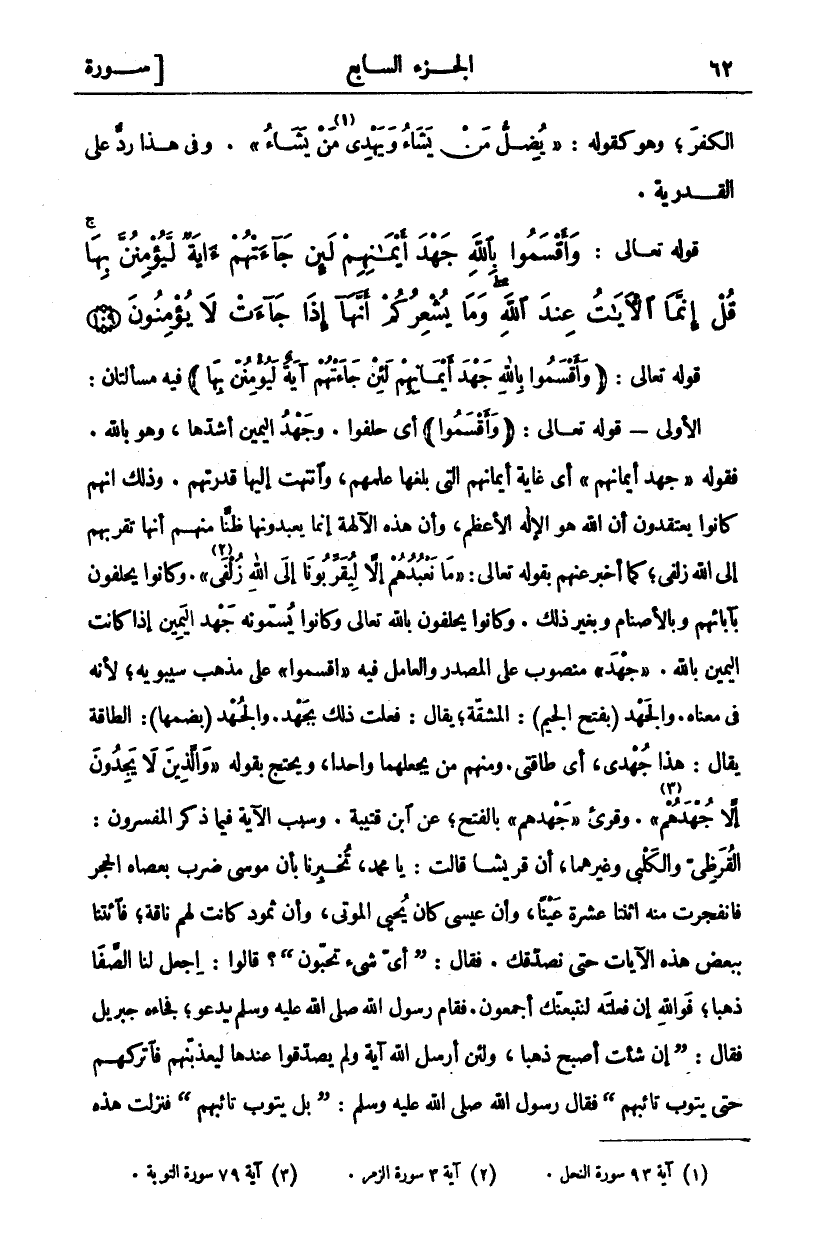 ٦٢ الجزء السابع [ سورة
الكفرَ؛ وهو كقوله : « يُضِلُّ مَنْ يَشَاءُ وَيَهْدِى مَنْ يَشَاءُ(١) » . وفى هذا ردٌّ على
القدرية .
قوله تعالى : وَأَقْسَمُوا بِٱللَّهِ جَهْدَ أَيْمَـٰنِهِمْ لَئِن جَآءَتْهُمْ ءَايَةٌ لَّيُؤْمِنُنَّ بِهَا ۚ
قُلْ إِنَّمَا ٱلْآيَـٰتُ عِندَ ٱللَّهِ ۖ وَمَا يُشْعِرُكُمْ أَنَّهَآ إِذَا جَآءَتْ لَا يُؤْمِنُونَ ﴿١٠٩﴾
قوله تعالى : ﴿ وَأَقْسَمُوا بِاللهِ جَهْدَ أَيْمَـانِهِمْ لَئِنْ جَاءَتْهُمْ آيَةٌ لَيُؤْمِنُنَّ بِهَا ﴾ فيه مسألتان :
الأولى — قوله تعـالى : ﴿ وَأَقْسَمُوا ﴾ أى حلفوا . وجَهْدُ اليمين أشدّها ، وهو بالله .
فقوله « جهد أيمانهم » أى غاية أيمانهم التى بلغها علمهم، وٱنتهت إليها قدرتهم . وذلك انهم
كانوا يعتقدون أن الله هو الإلٰه الأعظم، وأن هذه الآلهة إنما يعبدونها ظنًّا منهـم أنها تقربهم
إلى الله زلفى؛ كما أخبر عنهم بقوله تعالى: «مَا نَعْبُدُهُمْ إِلَّا لِيُقَرِّبُونَا إِلَى اللهِ زُلْفَى(٢)». وكانوا يحلفون
بآبائهم وبالأصنام وبغير ذلك . وكانوا يحلفون بالله تعالى وكانوا يُسمّونه جَهْد اليَمِين إذا كانت
اليمين بالله . «جَهْدَ» منصوب على المصدر والعامل فيه «اقسموا» على مذهب سيبويه؛ لأنه
فى معناه. والجَهْد (بفتح الجيم) : المشقّة؛ يقال : فعلت ذلك بجَهْد. والجُهْد (بضمها): الطاقة
يقال : هذا جُهْدى، أى طاقتى. ومنهم من يجعلهما واحدا، ويحتج بقوله «وَالَّذِينَ لَا يَجِدُونَ
إِلَّا جُهْدَهُمْ(٣)» . وقرئ «جَهْدهم» بالفتح؛ عن ٱبن قتيبة . وسبب الآية فيما ذكر المفسرون :
القُرَظِىّ والكَلْبِى وغيرهما، أن قريشـا قالت : يا محمد، تُخبـرنا بأن موسى ضرب بعصاه الحجر
فانفجرت منه اثنتا عشرة عَيْنًا، وأن عيسى كان يُحيى الموتى، وأن ثمود كانت لهم ناقة؛ فٱئتنا
ببعض هذه الآيات حتى نصدّقك . فقال : ”أىّ شىء تحبّون“؟ قالوا : إجعل لنا الصَّفَا
ذهبا؛ فَوالله إن فعلتَه لنتبعنّك أجمعون. فقام رسول الله صلى الله عليه وسلم يدعو؛ بجاءه جبريل
فقال : ”إن شئت أصبح ذهبا ، ولئن أرسل الله آية ولم يصدّقوا عندها ليعذبنّهم فٱتركهـم
حتى يتوب تائبهم“ فقال رسول الله صلى الله عليه وسلم : ”بل يتوب تائبهم“ فنزلت هذه
(١) آية ٩٣ سورة النحل . (٢) آية ٣ سورة الزمر . (٣) آية ٧٩ سورة التوبة .